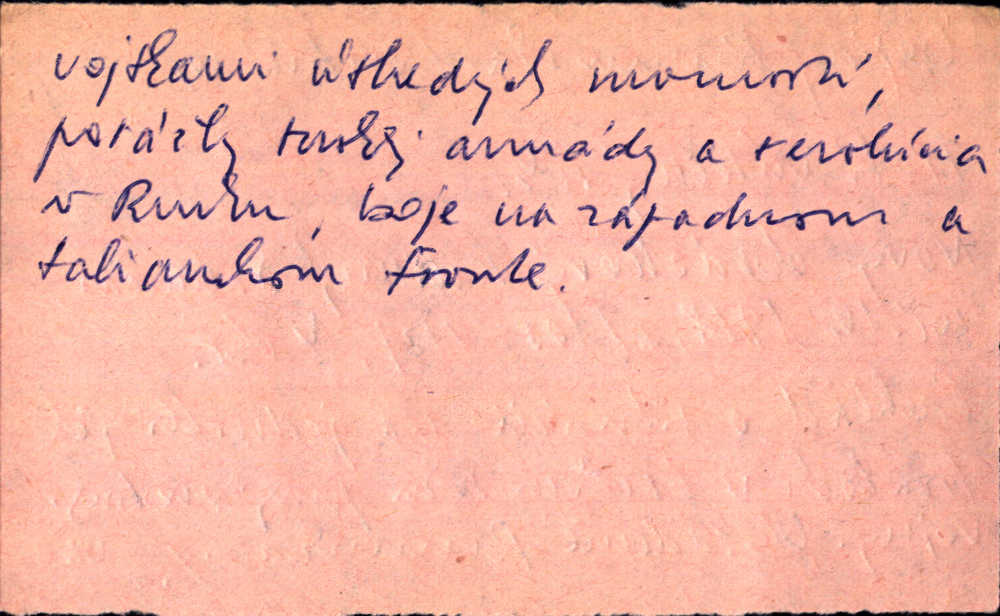 vojskami ústredných mocností,
porážky ruskej armády a revolúcia
v Rusku, boje na západnom a
talianskom fronte.